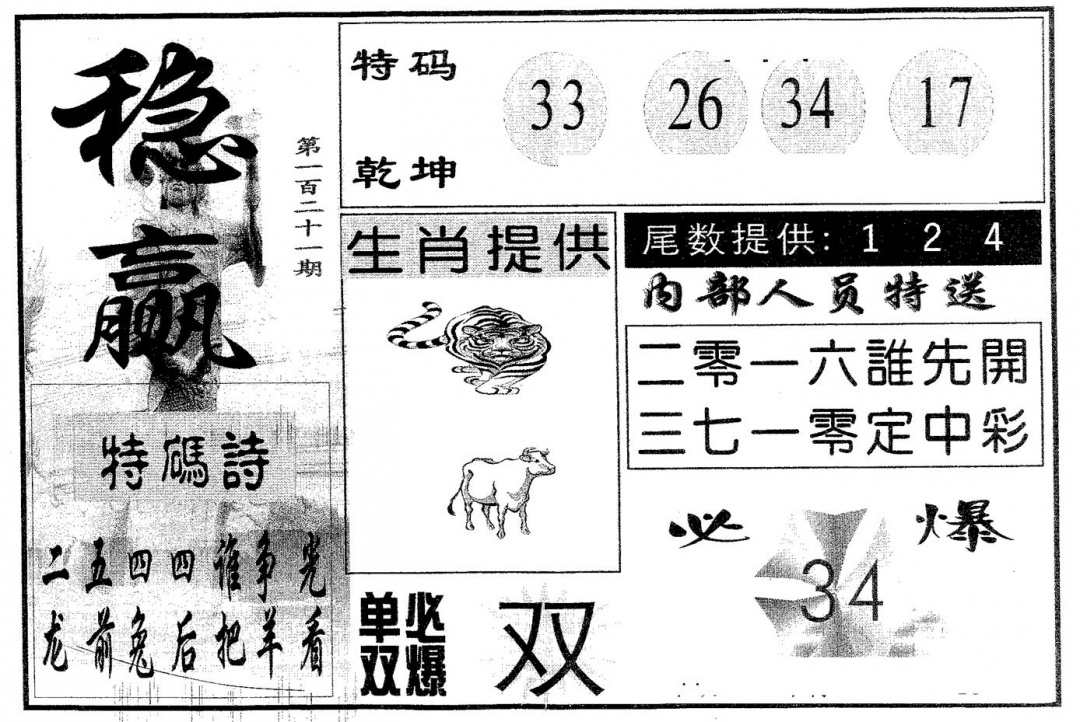 稳赢
第一百二十一期
特码
乾坤
33 26 34 17
生肖提供
尾数提供: 1 2 4
内部人员特送
二零一六誰先開
三七一零定中彩
特碼詩
二五四四谁争光
龙前兔后把羊看
必爆
34
单双
必爆
双